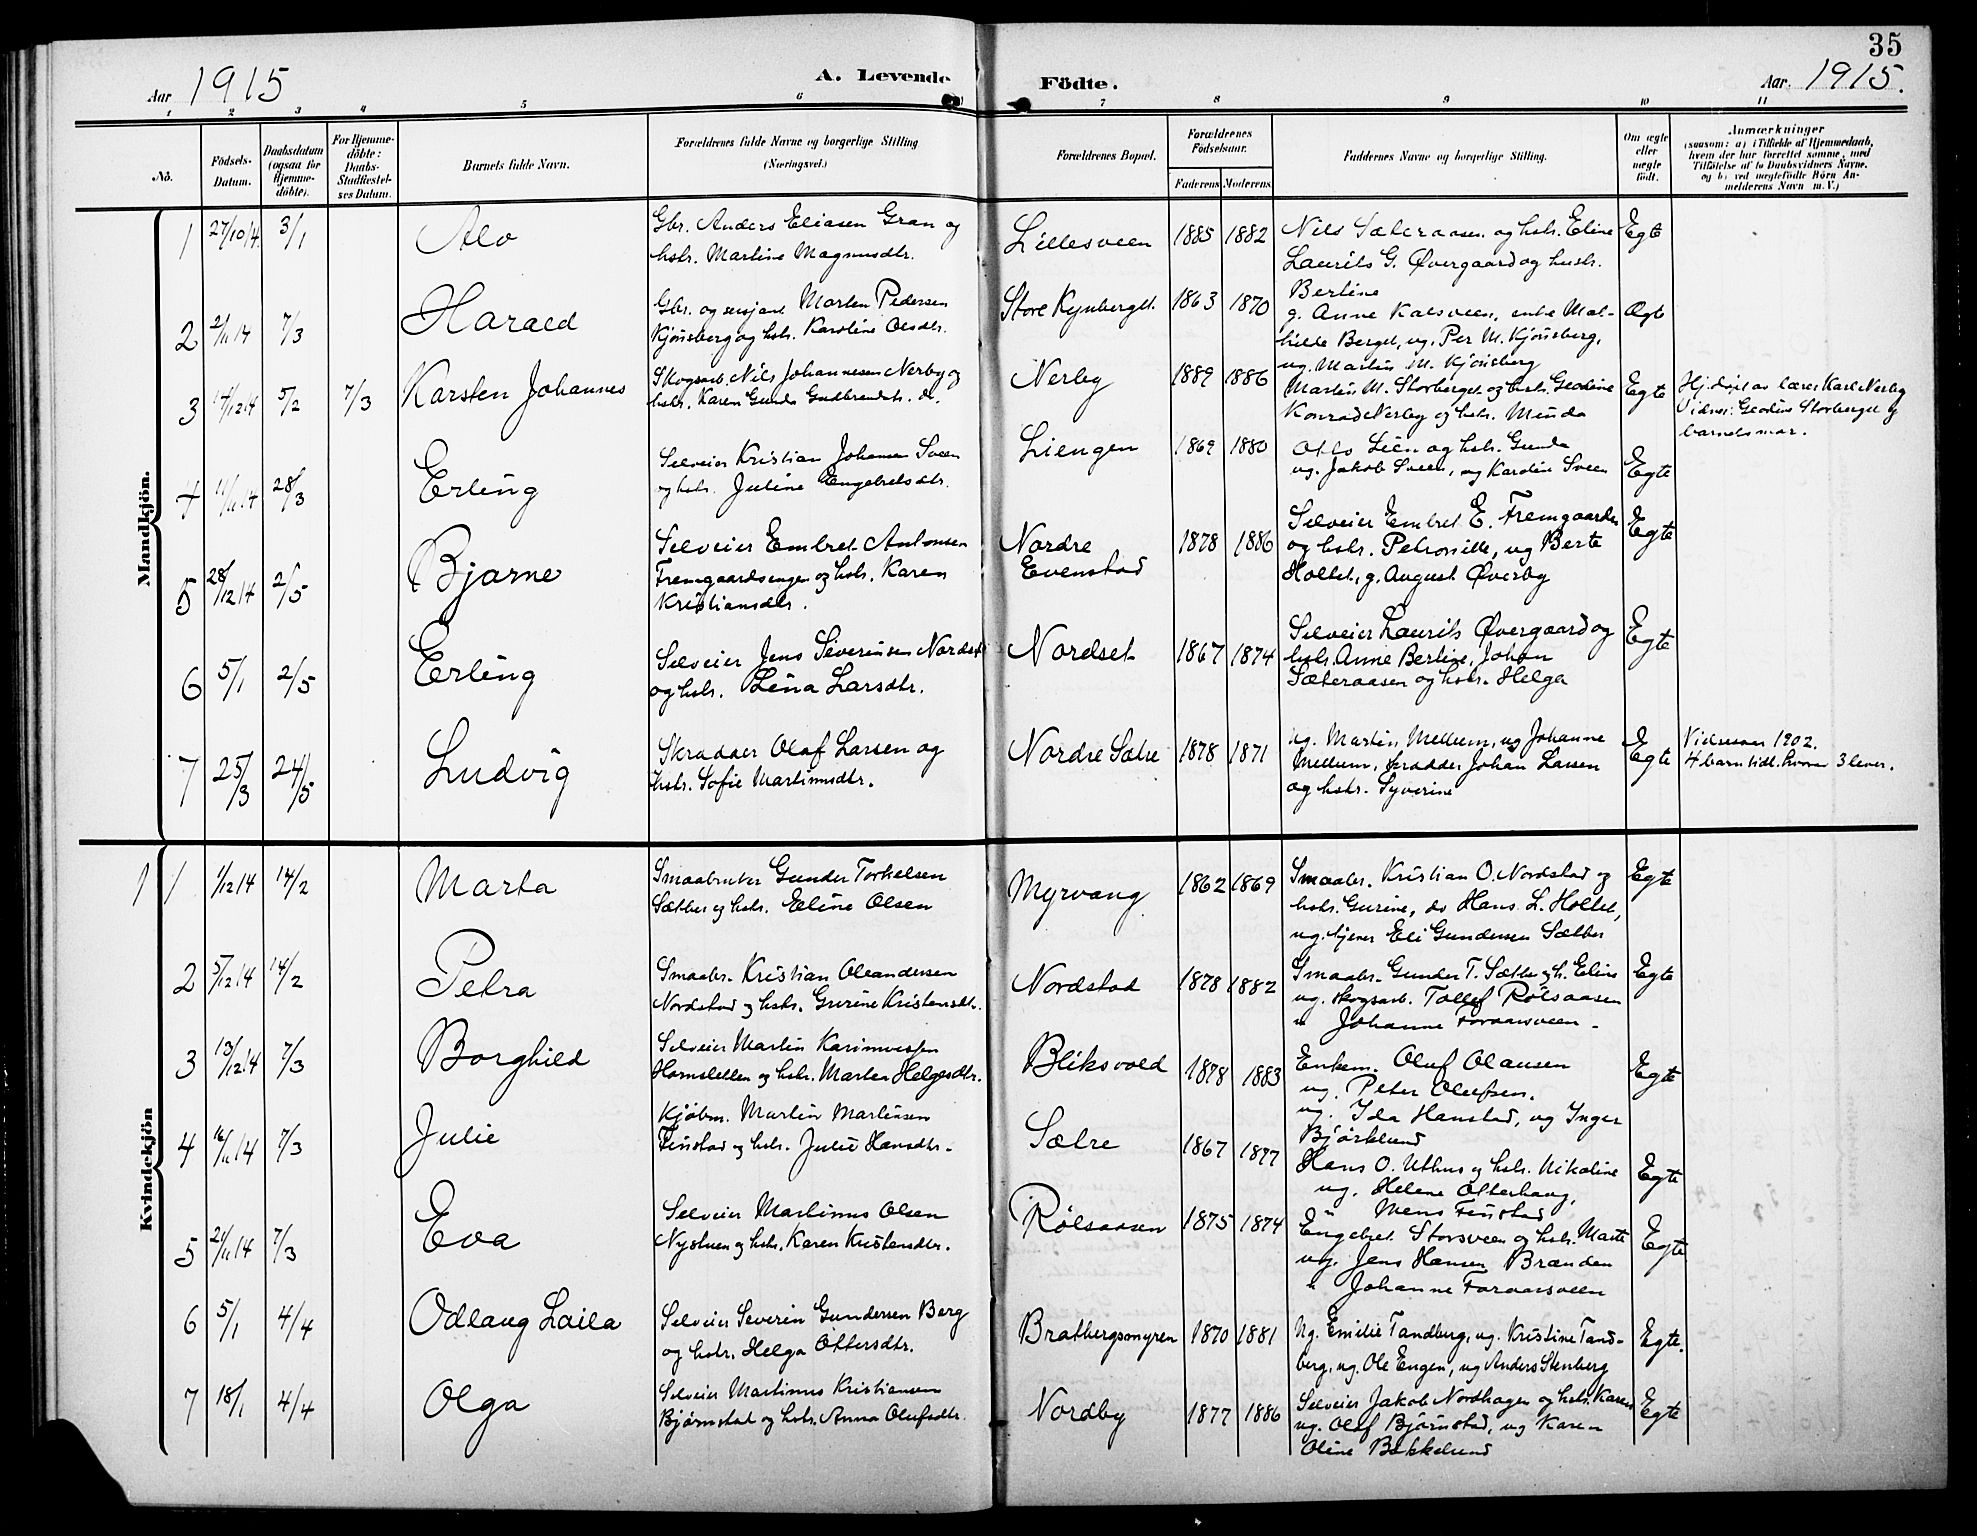 35
Aar 1915
A. Levende
Födte.
Aar 1915.
1 2 3 4 5 6 7 8 9 10 11
No.
Födsels-
Datum.
Daabsdatum
(ogsaa for
Hjemme-
döbte).
For Hjemme-
döbte:
Daabs-
Stadfæstel-
ses Datum.
Barnets fulde Navn.
Forældrenes fulde Navne og borgerlige Stilling
(Næringsvei.)
Forældrenes Bopæl.
Forældrenes
Födselsaar.
Faderens Moderens
Faddernes Navne og borgerlige Stilling.
Om ægte
eller
uægte
født.
Anmærkninger
(saasom: a) i Tilfælde af Hjemmedaab,
hvem der har forrettet samme, med
Tilföielse af to Daabsvidners Navne,
og b) ved uægtefödte Börn An-
melderens Navn m. V.)
Mandkjön.
1 27/10 14. 3/1
Alv
Gbr. Anders Eliasen Gran og
hstr. Martine Magnusdtr.
Lillesveen
1885 1882
Nils Sæteraasen og hstr. Eline
Laurits G. Øvergaard og hustr.
Bertine
Egte
2 2/11 14 7/3
Harald
Gbr. og sersjant Marten Pedersen
Kjønsberg og hstr. Karoline Olsdtr.
Store Kynberget.
1863 1870
g. Anne Kalsveen, enke Mat-
hilde Berget, ug. Per M. Kjønsberg,
ug. Martin M. Kjønsberg
Ægte
3 14/12 14 5/2 7/3
Karsten Johannes
Skogsarb. Nils Johannesen Nerby og
hstr. Karen Gunda Gudbrandsdtr. do.
Nerby
1889 1886
Martin M. Storberget og hstr. Geodine
Konrad Nerby og hstr. Minda
Egte
Hj.døpt av lærer Karl Nerby
Vidner: Geodine Storberget og
barnets mor.
4 11/11 14 28/3
Erling
Selveier Kristian Johansen Sveen
og hstr. Juline Engebretsdtr.
Liengen
1869 1880
Otto Lien og hstr. Gunda
ug. Jakob Sveen, ug Karoline Sveen
Egte
5 28/12 14 2/5
Bjarne
Selveier Embret Antonsen
Fremgaardsengen og hstr. Karen
Kristiansdtr.
Nordre
Evenstad
1878 1886
Selveier Embret E. Fremgaarden
og hstr. Petronille, ug Berte
Holtet, g. August Øverby
Egte
6 5/1 2/5
Erling
Selveier Jens Siverinsen Nordset
og hstr. Lina Larsdtr.
Nordset
1867 1874
Selveier Laurits Øvergaard og
hstr. Anne Bertine, Johan
Sæteraasen og hstr. Helga
Egte
7 25/3 24/5
Ludvig
Skrædder Olaf Larsen og
hstr. Sofie Martinusdtr.
Nordre Sætre
1878 1871
ug. Martin Mellum, ug Johanne
Mellum, skrædder Johan Larsen
og hstr. Syverine
Egte
Vielsesaar 1902.
4 barn tidl. hvorav 3 lever.
Kvindekjön
1 1 1/12 14 14/2
Marta
Smaabruker Gunder Torkelsen
Sætber og hstr. Eline Olsen
Myrvang
1862 1869
Smaabr. Kristian O. Nordstad og
hstr. Gurine, do Hans L. Holtet,
ug. tjener Eli Gundersen Sætber
Egte
2 5/12 14 14/2
Petra
Smaabr. Kristian Oleandersen
Nordstad og hstr. Gurine Kristensdtr.
Nordstad
1878 1882
Smaabr. Gunder T. Sætbe og h. Eline
ug. skogsarb. Tollef Rølsaasen
" Johanne Foraarsveen.
Egte
3 13/12 14 7/3
Borghild
Selveier Martin Karinusen
Hornsletten og hstr. Marten Helgesdtr.
Bliksvold
1878 1883
Enkem. Oluf Olausen
ug. Peter Olufsen.
ug. Ida Hanstad, ug Inger
Bjørklund
Egte
4 16/11 14 7/3
Julie
Kjøbm. Martin Martinsen
Finstad og hstr. Julie Hansdtr.
Sætre
1867 1877
Hans O. Uthus og hstr. Nikoline
ug. Helene Otterhaug,
" Mens Finstad
Egte
5 21/11 14 7/3
Eva
Selveier Martinus Olsen
Nystuen og hstr. Karen Kristensdtr.
Rølsaasen
1875 1874
Engebret Storsveen og hstr. Marte
ug. Jens Hansen Brænden
" Johanne Foraarsveen
Egte
6 5/1 4/4
Odlaug Laila
Selveier Severin Gundersen Berg
og hstr. Helga Ottersdtr.
Bratbergsmyren
1870 1881
Ug. Emilie Tandberg, ug. Kristine Tand-
berg, ug. Ole Engen, ug Anders Stenberg
Egte.
7 18/1 4/4
Olga
Selveier Martinus Kristiansen
Bjørnstad og hstr. Anna Olufsdtr.
Nordby
1877 1886
Selveier Jakob Nordhagen og hstr. Karen
ug. Olaf Bjørnstad, ug Karen
Oline Bekkelund
Egte